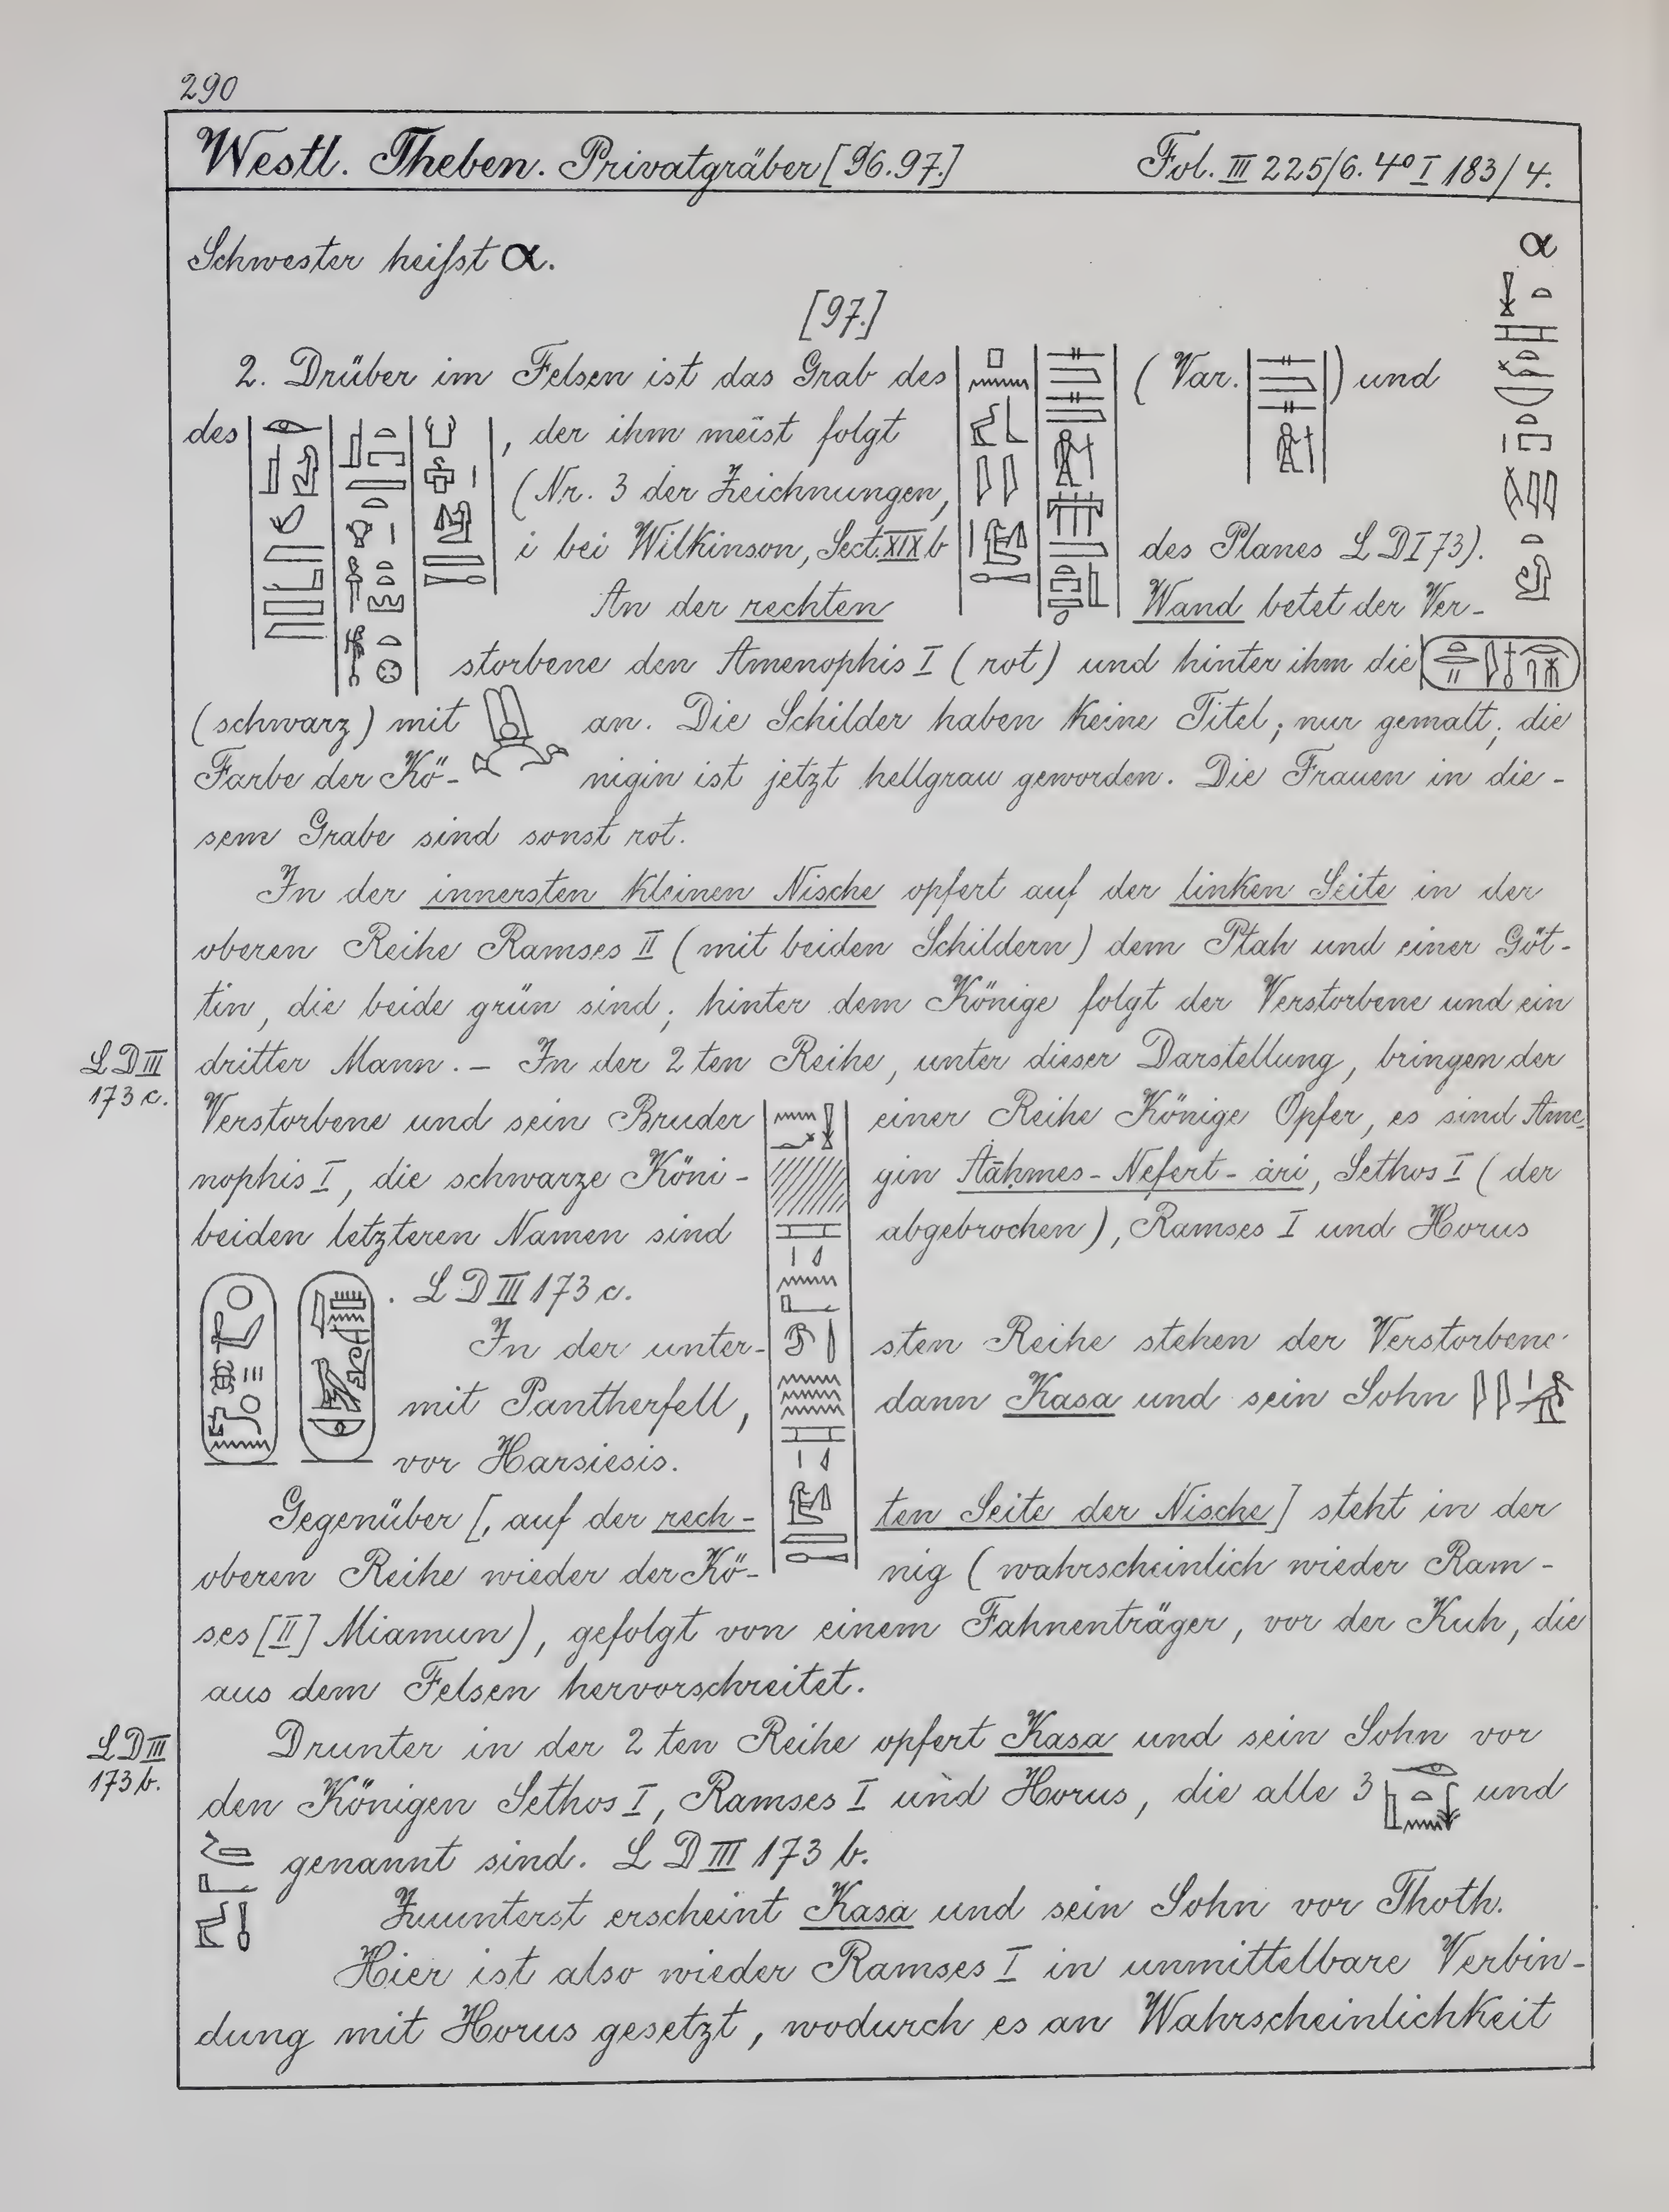 290
Westl. Theben. Privatgräber [96.97.] Fol. III 225/6. 4° I 183/4.
Schwester heißt α.
α
[97.]
2. Drüber im Felsen ist das Grab des (Var. ) und
des , der ihm meist folgt
(Nr. 3 der Zeichnungen,
i bei Wilkinson, Sect. XIX b des Planes L D I 73).
An der rechten Wand betet der Ver-
storbene den Amenophis I (rot) und hinter ihm die
(schwarz) mit an. Die Schilder haben keine Titel; nur gemalt; die
Farbe der Kö- nigin ist jetzt hellgrau geworden. Die Frauen in die-
sem Grabe sind sonst rot.
In der innersten kleinen Nische opfert auf der linken Seite in der
oberen Reihe Ramses II (mit beiden Schildern) dem Ptah und einer Göt-
tin, die beide grün sind; hinter dem Könige folgt der Verstorbene und ein
L D III
173 c.
dritter Mann. – In der 2 ten Reihe, unter dieser Darstellung, bringen der
Verstorbene und sein Bruder einer Reihe Könige Opfer, es sind Ame-
nophis I, die schwarze Köni- gin Aāḥmes-Nefert-ari, Sethos I (der
beiden letzteren Namen sind abgebrochen), Ramses I und Horus
. L D III 173 c.
In der unter- sten Reihe stehen der Verstorbene
mit Pantherfell, dann Kasa und sein Sohn
vor Harsiesis.
Gegenüber [, auf der rech- ten Seite der Nische] steht in der
oberen Reihe wieder der Kö- nig (wahrscheinlich wieder Ram-
ses [II] Miamun), gefolgt von einem Fahnenträger, vor der Kuh, die
aus dem Felsen hervorschreitet.
L D III
173 b.
Drunter in der 2 ten Reihe opfert Kasa und sein Sohn vor
den Königen Sethos I, Ramses I und Horus, die alle 3 und
genannt sind. L D III 173 b.
Zuunterst erscheint Kasa und sein Sohn vor Thoth.
Hier ist also wieder Ramses I in unmittelbare Verbin-
dung mit Horus gesetzt, wodurch es an Wahrscheinlichkeit